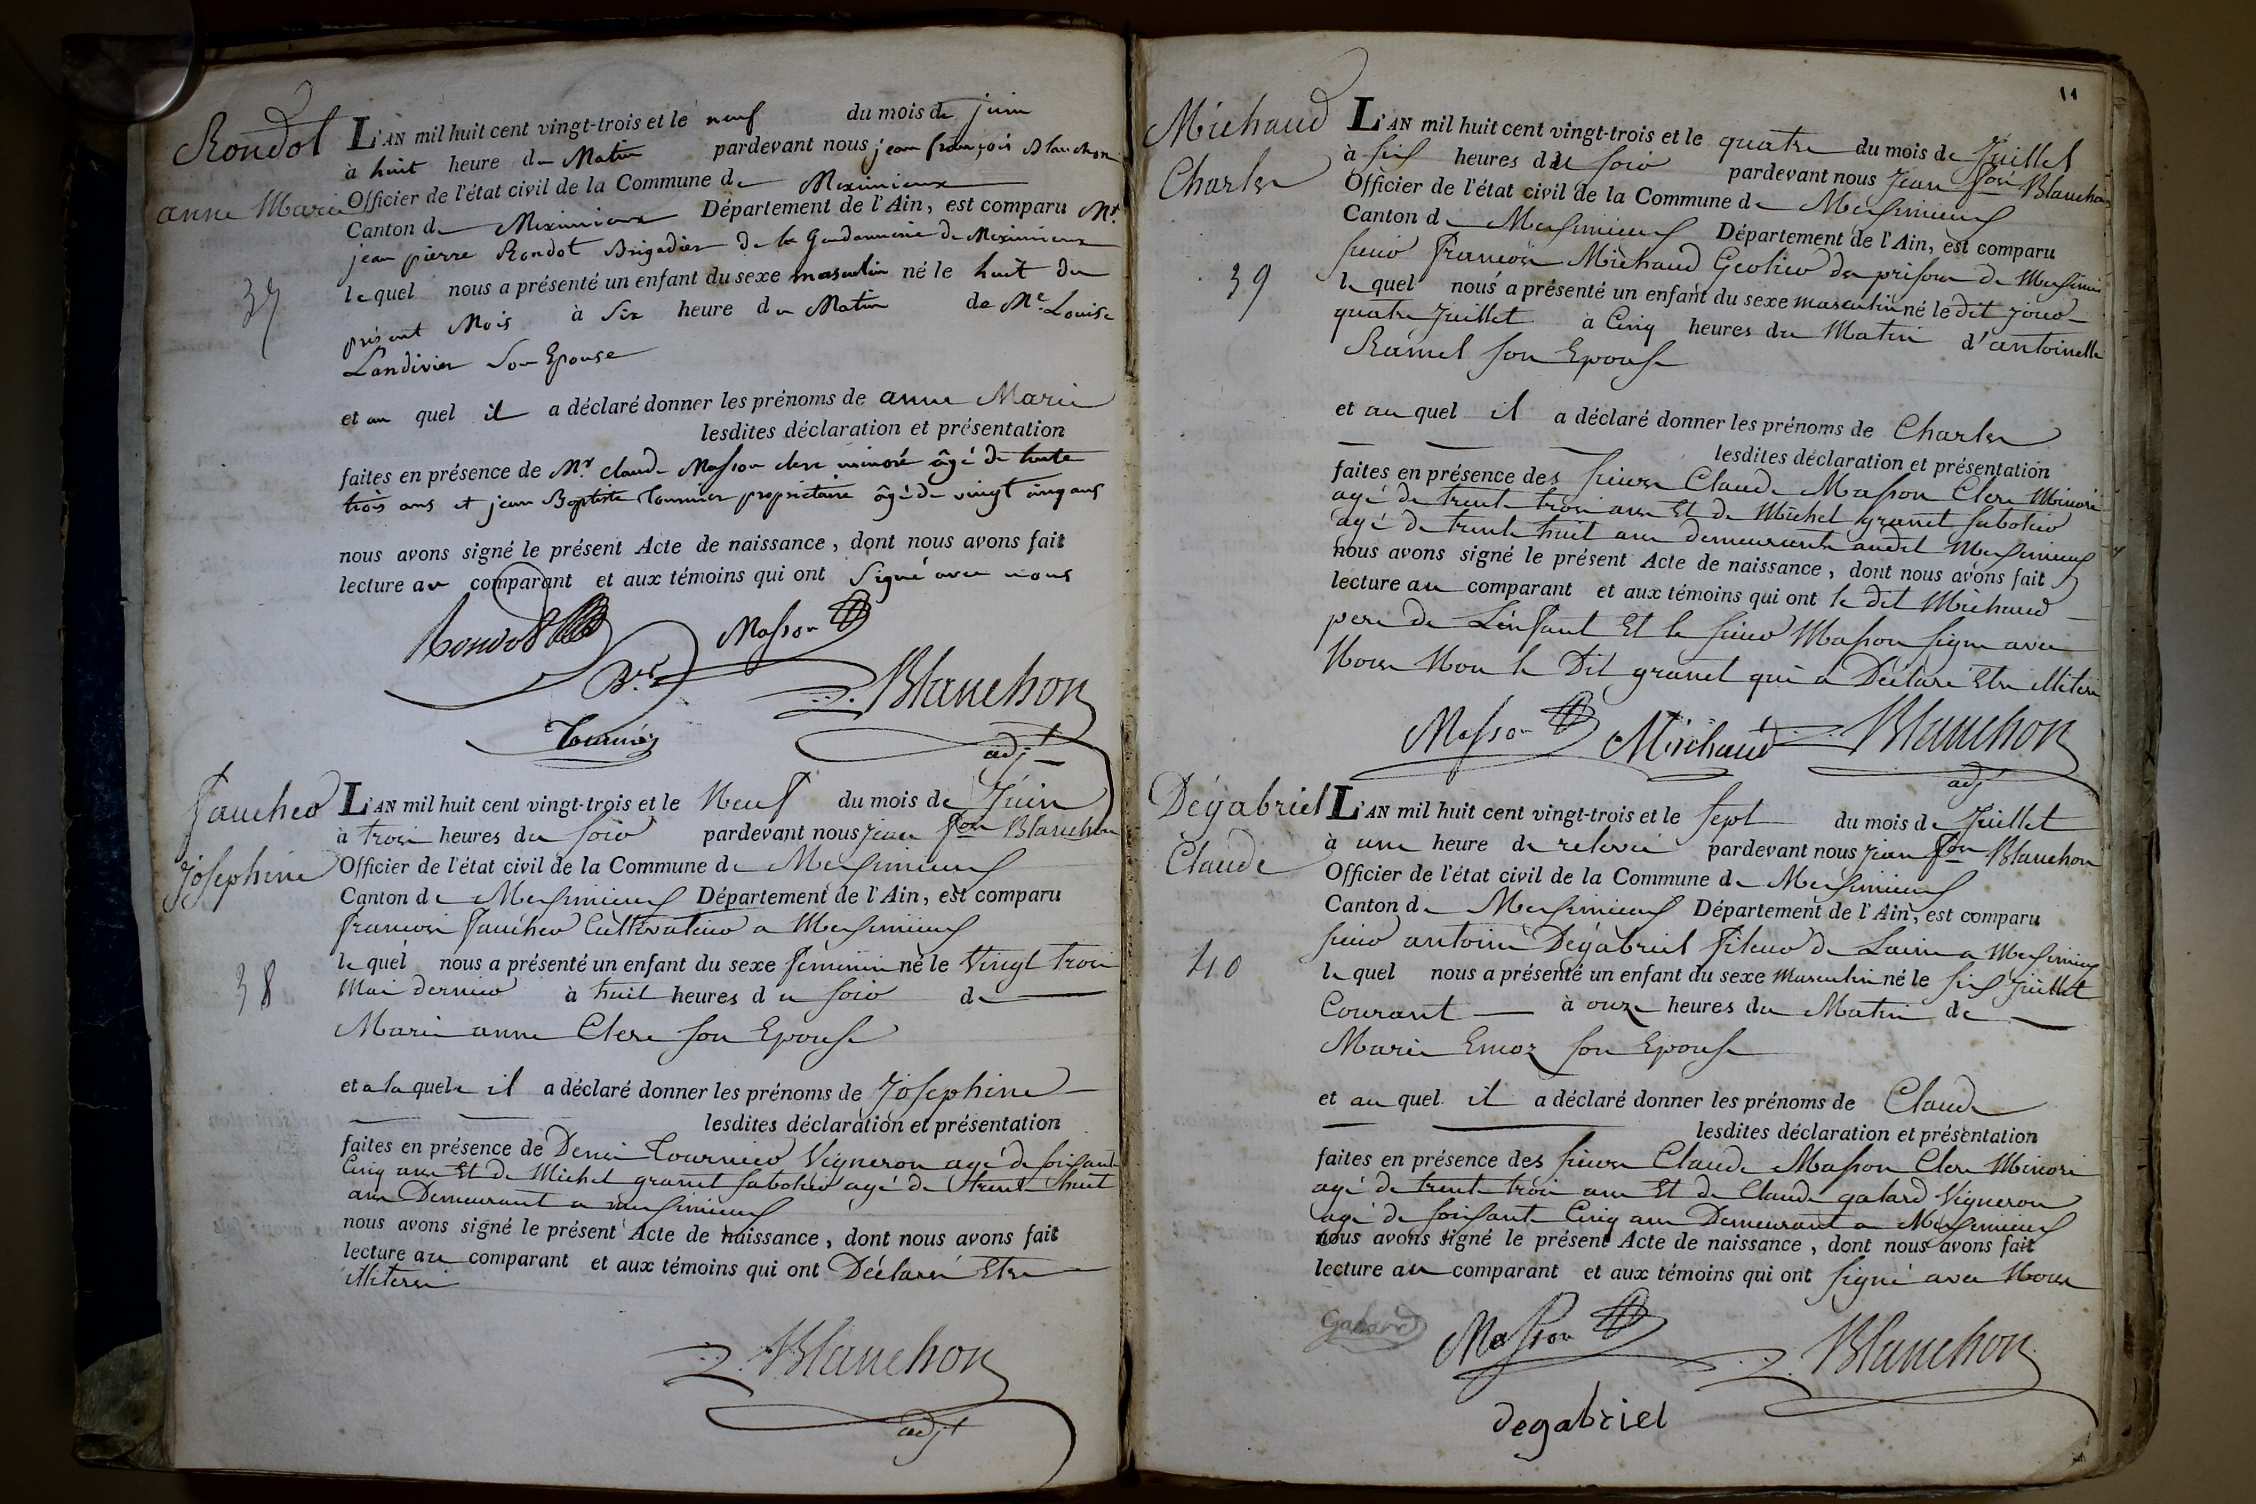 Rondot
anne Marie
37
L'AN mil huit cent vingt-trois et le neuf du mois de juin
à huit heure du Matin pardevant nous jean françois Blanchon
Officier de l'état civil de la Commune de Meximieux
Canton de Meximieux Département de l'Ain, est comparu Mr.
jean pierre Rondot Brigadier de la Gendarmerie de Meximieux
le quel nous a présenté un enfant du sexe masculin né le huit du
présent Mois à Six heure du Matin de Me. Louise
Landivier Son Epouse
et au quel il a déclaré donner les prénoms de anne Marie
lesdites déclaration et présentation
faites en présence de Mr claude Masson clerc minoré âgé de trente
trois ans et jean Baptiste Tournier propriétaire âgé de vingt cinq ans
nous avons signé le présent Acte de naissance, dont nous avons fait
lecture au comparant et aux témoins qui ont Signé avec nous
Rondot Masson
Blanchon
Tournier
adjt
Faucheur
Josephine
38
L'AN mil huit cent vingt-trois et le Neuf du mois de Juin
à trois heures du soir pardevant nous jean fcois Blanchon
Officier de l'état civil de la Commune de Messimieux
Canton de Messimieux Département de l'Ain, est comparu
François Faucheur Cultivateur a Messimieux
le quel nous a présenté un enfant du sexe féminin né le Vingt trois
Mai dernier à huit heures du soir de
Marie anne Clerc son Epouse
et a la quele il a déclaré donner les prénoms de Josephine
lesdites déclaration et présentation
faites en présence de Denis Tournier Vigneron agé de soisante
Cinq ans Et de Michel granet sabotier agé de trente huit
ans Demeurant a messimieux
nous avons signé le présent Acte de naissance, dont nous avons fait
lecture au comparant et aux témoins qui ont Déclaré Etre
illiteré
Blanchon
adjt
11
Michaud
Charles
39
L'AN mil huit cent vingt-trois et le quatre du mois de Juillet
à six heures du soir pardevant nous Jean fcois Blanchon
Officier de l'état civil de la Commune de Messimieux
Canton de Messimieux Département de l'Ain, est comparu
sieur François Michaud Geolier des prisons de Messimieux
le quel nous a présenté un enfant du sexe masculin né ledit jour
quatre Juillet à Cinq heures du Matin d'antoinette
Ramel son Epouse
et au quel il a déclaré donner les prénoms de Charles
lesdites déclaration et présentation
faites en présence des sieurs Claude Masson Clerc Minoré
agé de trente trois ans Et de Michel granet sabotier
agé de trente huit ans demeurants audit Messimieux
nous avons signé le présent Acte de naissance, dont nous avons fait
lecture au comparant et aux témoins qui ont le dit Michaud
pere de L'enfant Et le sieur Masson signé avec
Nous Non le Dit granet qui a Déclaré Etre illiteré
Masson Michaud Blanchon
adjt
Dégabriel
Claude
40
L'AN mil huit cent vingt-trois et le sept du mois de Juillet
à une heure de relevée pardevant nous jean fcois Blanchon
Officier de l'état civil de la Commune de Messimieux
Canton de Messimieux Département de l'Ain, est comparu
sieur antoine Dégabriel fileur de Laine a Messimieux
le quel nous a présenté un enfant du sexe Masculin né le six juillet
Courant à onze heures du Matin de
Marie Emoz son Epouse
et au quel il a déclaré donner les prénoms de Claude
lesdites déclaration et présentation
faites en présence des sieurs Claude Masson Clerc Minoré
agé de trente trois ans Et de Claude galard Vigneron
agé de soisante Cinq ans Demeurant a Messimieux
nous avons signé le présent Acte de naissance, dont nous avons fait
lecture au comparant et aux témoins qui ont signé avec Nous
Galard Masson Blanchon
degabriel